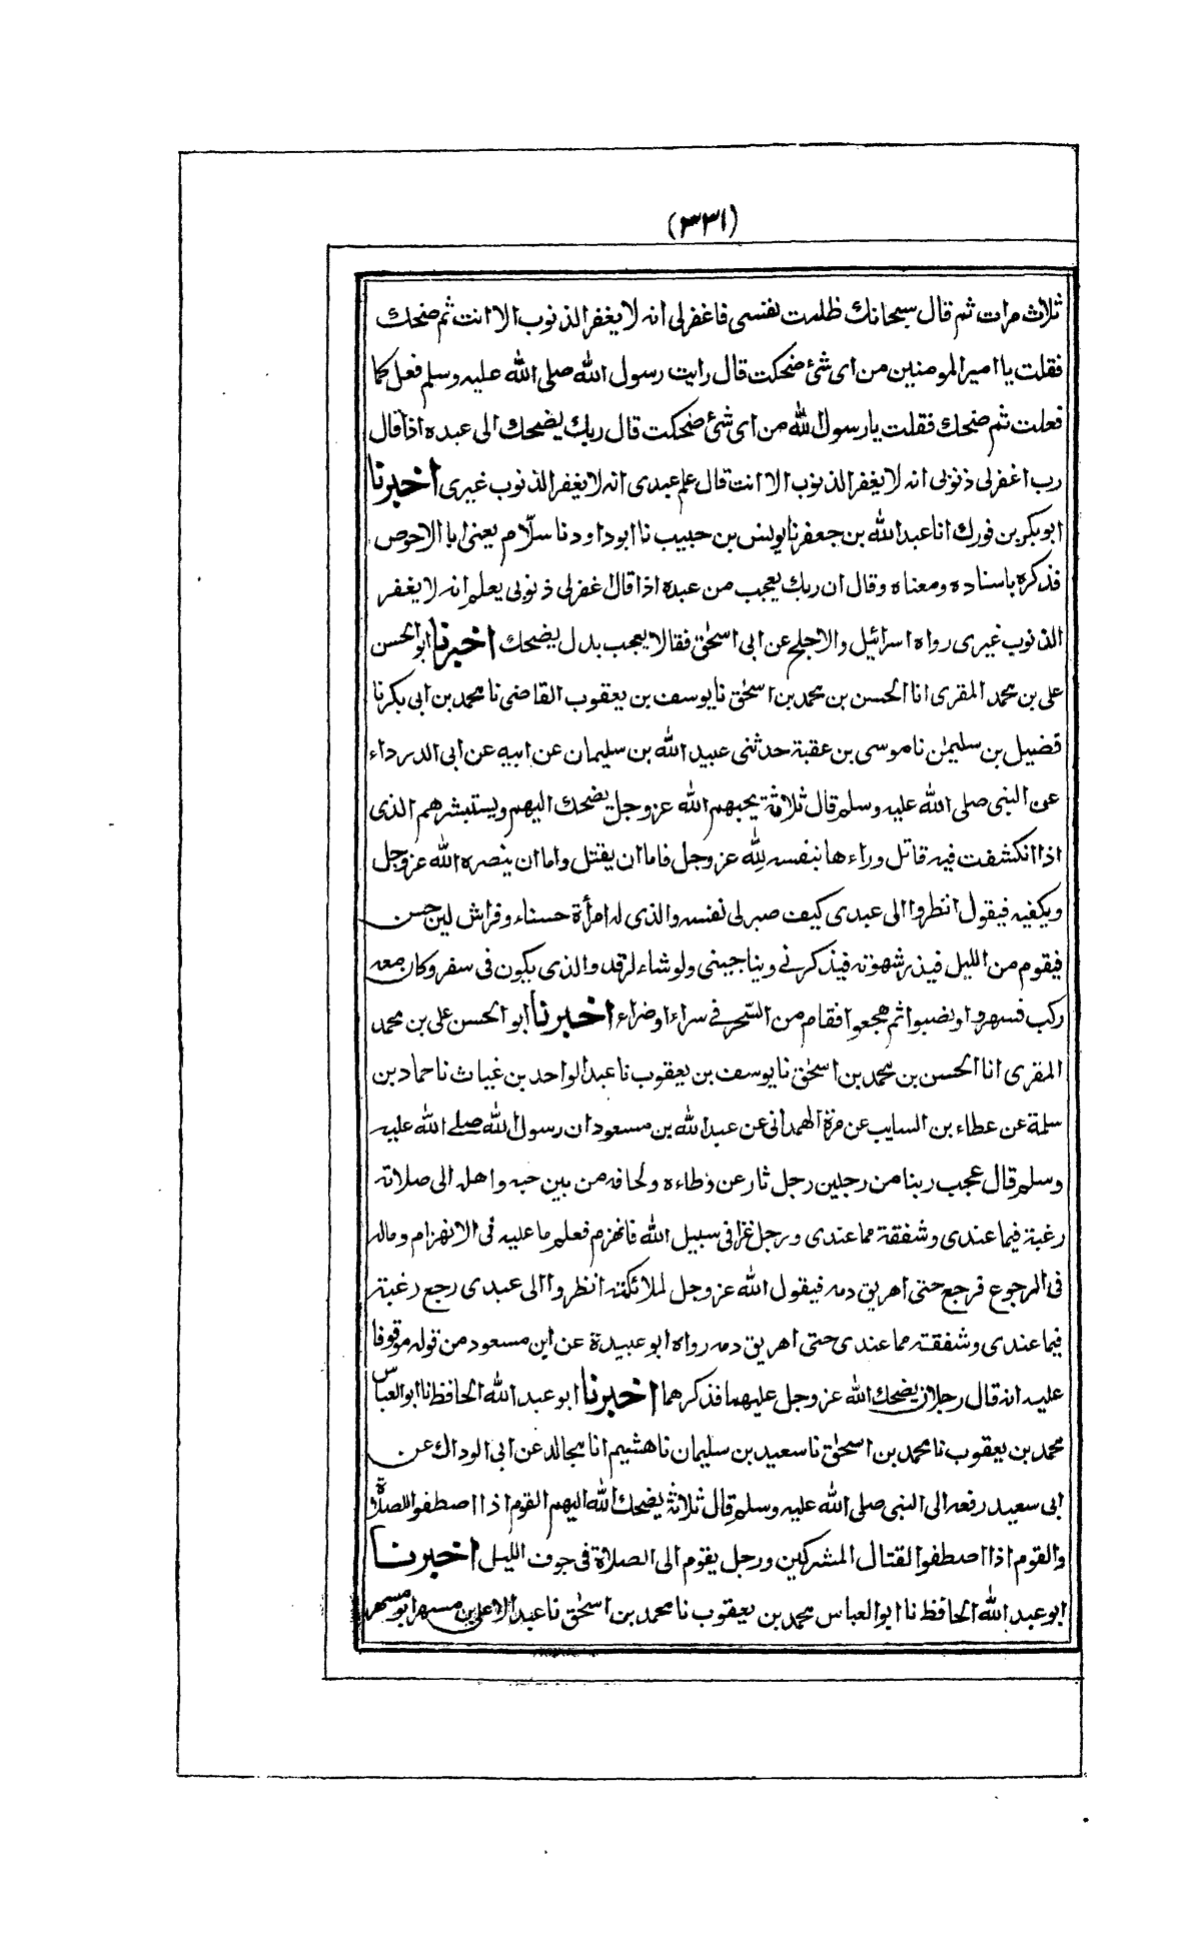 (٣٣١)
ثلاث مرات ثم قال سبحانك ظلمت نفسى فاغفرلى انه لا يغفر الذنوب الا انت ثم ضحك
فقلت يا امير المومنين من اى شئ ضحكت قال رايت رسول الله صلى الله عليه وسلم فعل كما
فعلت ثم ضحك فقلت يا رسول الله من اى شئ ضحكت قال ربك يضحك الى عبده اذا قال
رب اغفرلى ذنوبى انه لا يغفر الذنوب الا انت قال علم عبدى انه لا يغفر الذنوب غيرى اخبرنا
ابو بكر بن فورك انا عبد الله بن جعفر نا يونس بن حبيب نا ابو داود نا سلّام يعنى ابا الاحوص
فذكره باسناده ومعناه وقال ان ربك يعجب من عبده اذا قال اغفرلى ذنوبى يعلم انه لا يغفر
الذنوب غيرى رواه اسرائيل والاجلح عن ابى اسحٰق فقالا يعجب بدل يضحك اخبرنا ابو الحسن
على بن محمد المقرى انا الحسن بن محمد بن اسحٰق نا يوسف بن يعقوب القاضى نا محمد بن ابى بكر نا
فضيل بن سليمٰن نا موسى بن عقبة حدثنى عبيد الله بن سليمان عن ابيه عن ابى الدرداء
عن النبى صلى الله عليه وسلم قال ثلاثة يحبهم الله عز وجل يضحك اليهم ويستبشر بهم الذى
اذا انكشفت فيه قاتل وراءها بنفسه لله عز وجل فاما ان يقتل واما ان ينصره الله عز وجل
ويكفيه فيقول انظروا الى عبدى كيف صبر لى نفسه والذى له امرأة حسناء وفراش لين حسن
فيقوم من الليل فيذر شهوته فيذكرنے ويناجينى ولو شاء لرقد والذى يكون فى سفر وكان معه
ركب فسهروا ونصبوا ثم هجعوا فقام من السّحر فے سراء او ضراء اخبرنا ابو الحسن على بن محمد
المقرى انا الحسن بن محمد بن اسحٰق نا يوسف بن يعقوب نا عبد الواحد بن غياث نا حماد بن
سلمة عن عطاء بن السايب عن مرة الهمدانى عن عبد الله بن مسعود ان رسول الله صلے الله عليه
وسلم قال عجب ربنا من رجلين رجل ثار عن وطاءه ولحافه من بين حبه واهله الى صلاته
رغبة فيما عندى وشفقة مما عندى ورجل غزا فى سبيل الله فانهزم فعلم ما عليه فى الانهزام وماله
فى الرجوع فرجع حتى اهريق دمه فيقول الله عز وجل لملائكته انظروا الى عبدى رجع رغبة
فيما عندى وشفقته مما عندى حتى اهريق دمه رواه ابو عبيدة عن ابن مسعود من قوله موقوفا
عليه انه قال رجلان يضحك الله عز وجل عليهما فذكرهما اخبرنا ابو عبد الله الحافظ نا ابو العباس
محمد بن يعقوب نا محمد بن اسحٰق نا سعيد بن سليمان نا هشيم انا مجالد عن ابى الوداك عن
ابى سعيد رفعه الى النبى صلى الله عليه وسلم قال ثلاثة يضحك الله اليهم القوم اذا اصطفوا للصلاة
والقوم اذا اصطفوا لقتال المشركين ورجل يقوم الى الصلاة فى جوف الليل اخبرنا
ابو عبد الله الحافظ نا ابو العباس محمد بن يعقوب نا محمد بن اسحٰق نا عبد الاعلى بن مسهر ابو مسهر